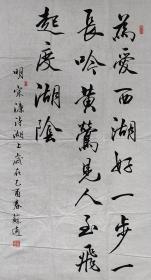 為愛西湖好一步一
長吟黄鶯見人至飛
起度湖陰
明宋濂诗湖上歲在己酉春蘇適